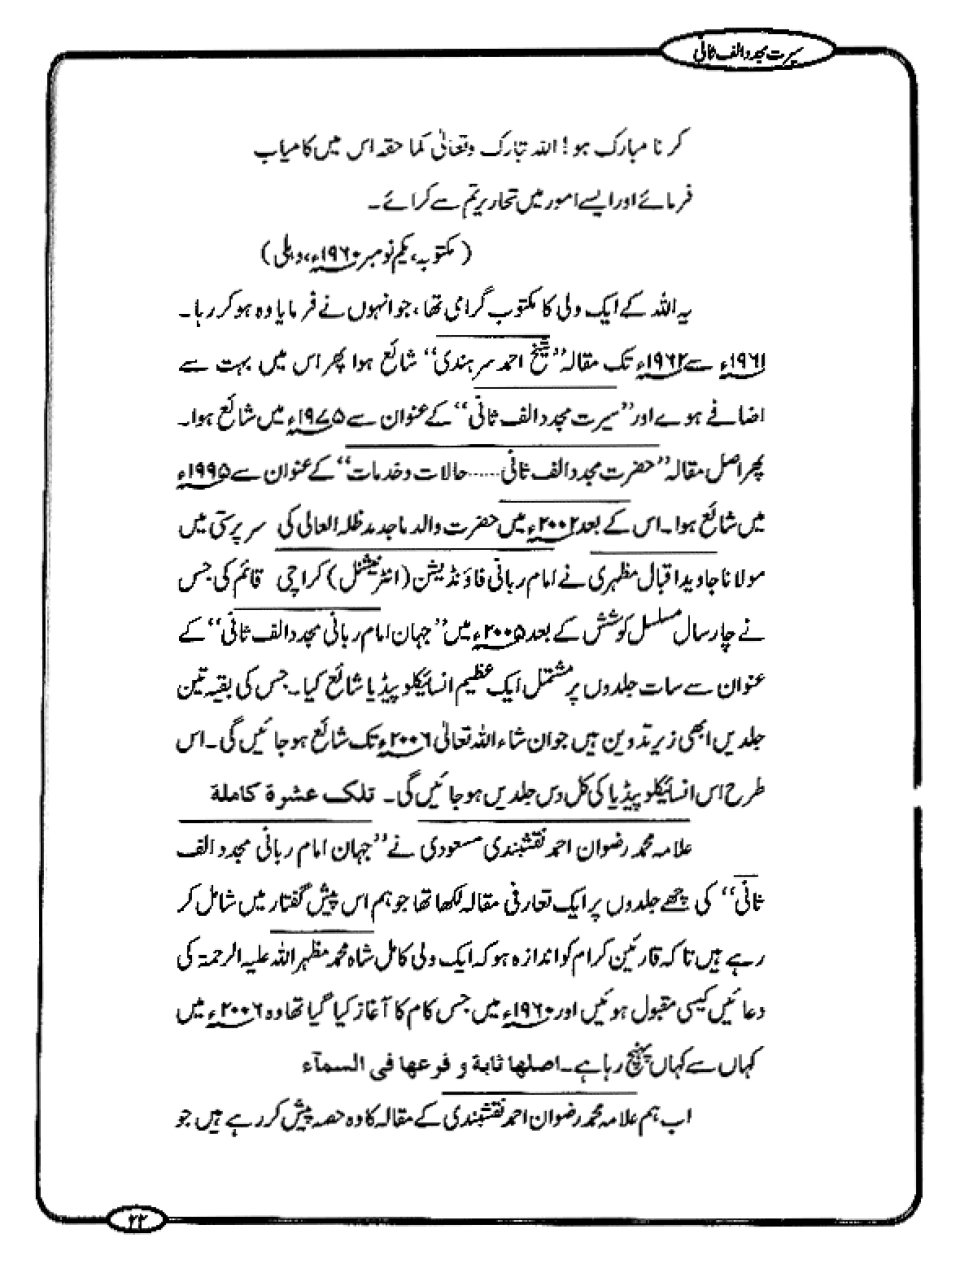 سیرت مجدد الف ثانی
کرنا مبارک ہو! اللہ تبارک وتعالیٰ کما حقہ اس میں کامیاب
فرمائے اور ایسے امور میں تحاریر تم سے کرائے۔
(مکتوبہ، یکم نومبر ۱۹۶۰ء، دہلی)
یہ اللہ کے ایک ولی کا مکتوب گرامی تھا، جو انہوں نے فرمایا وہ ہو کر رہا۔
۱۹۶۱ء سے ۱۹۶۲ء تک مقالہ ”شیخ احمد سرہندی“ شائع ہوا پھر اس میں بہت سے
اضافے ہوے اور ”سیرت مجدد الف ثانی“ کے عنوان سے ۱۹۷۵ء میں شائع ہوا۔
پھر اصل مقالہ ”حضرت مجدد الف ثانی ..... حالات و خدمات“ کے عنوان سے ۱۹۹۵ء
میں شائع ہوا۔ اس کے بعد ۲۰۰۲ء میں حضرت والد ماجد مدظلہ العالی کی سرپرستی میں
مولانا جاوید اقبال مظہری نے امام ربانی فاؤنڈیشن (انٹرنیشنل) کراچی قائم کی جس
نے چار سال مسلسل کوشش کے بعد ۲۰۰۵ء میں ”جہان امام ربانی مجدد الف ثانی“ کے
عنوان سے سات جلدوں پر مشتمل ایک عظیم انسائیکلوپیڈیا شائع کیا۔ جس کی بقیہ تین
جلدیں ابھی زیر تدوین ہیں جو ان شاء اللہ تعالیٰ ۲۰۰۶ء تک شائع ہو جائیں گی۔ اس
طرح اس انسائیکلوپیڈیا کی کل دس جلدیں ہو جائیں گی۔ تلک عشرة کاملة
علامہ محمد رضوان احمد نقشبندی مسعودی نے ”جہان امام ربانی مجدد الف
ثانی“ کی چھے جلدوں پر ایک تعارفی مقالہ لکھا تھا جو ہم اس پیش گفتار میں شامل کر
رہے ہیں تاکہ قارئین کرام کو اندازہ ہو کہ ایک ولی کامل شاہ محمد مظہر اللہ علیہ الرحمۃ کی
دعائیں کیسی مقبول ہوئیں اور ۱۹۶۰ء میں جس کام کا آغاز کیا گیا تھا وہ ۲۰۰۶ء میں
کہاں سے کہاں پہنچ رہا ہے۔ اصلھا ثابة و فرعھا فی السمآء
اب ہم علامہ محمد رضوان احمد نقشبندی کے مقالہ کا وہ حصہ پیش کر رہے ہیں جو
۲۲